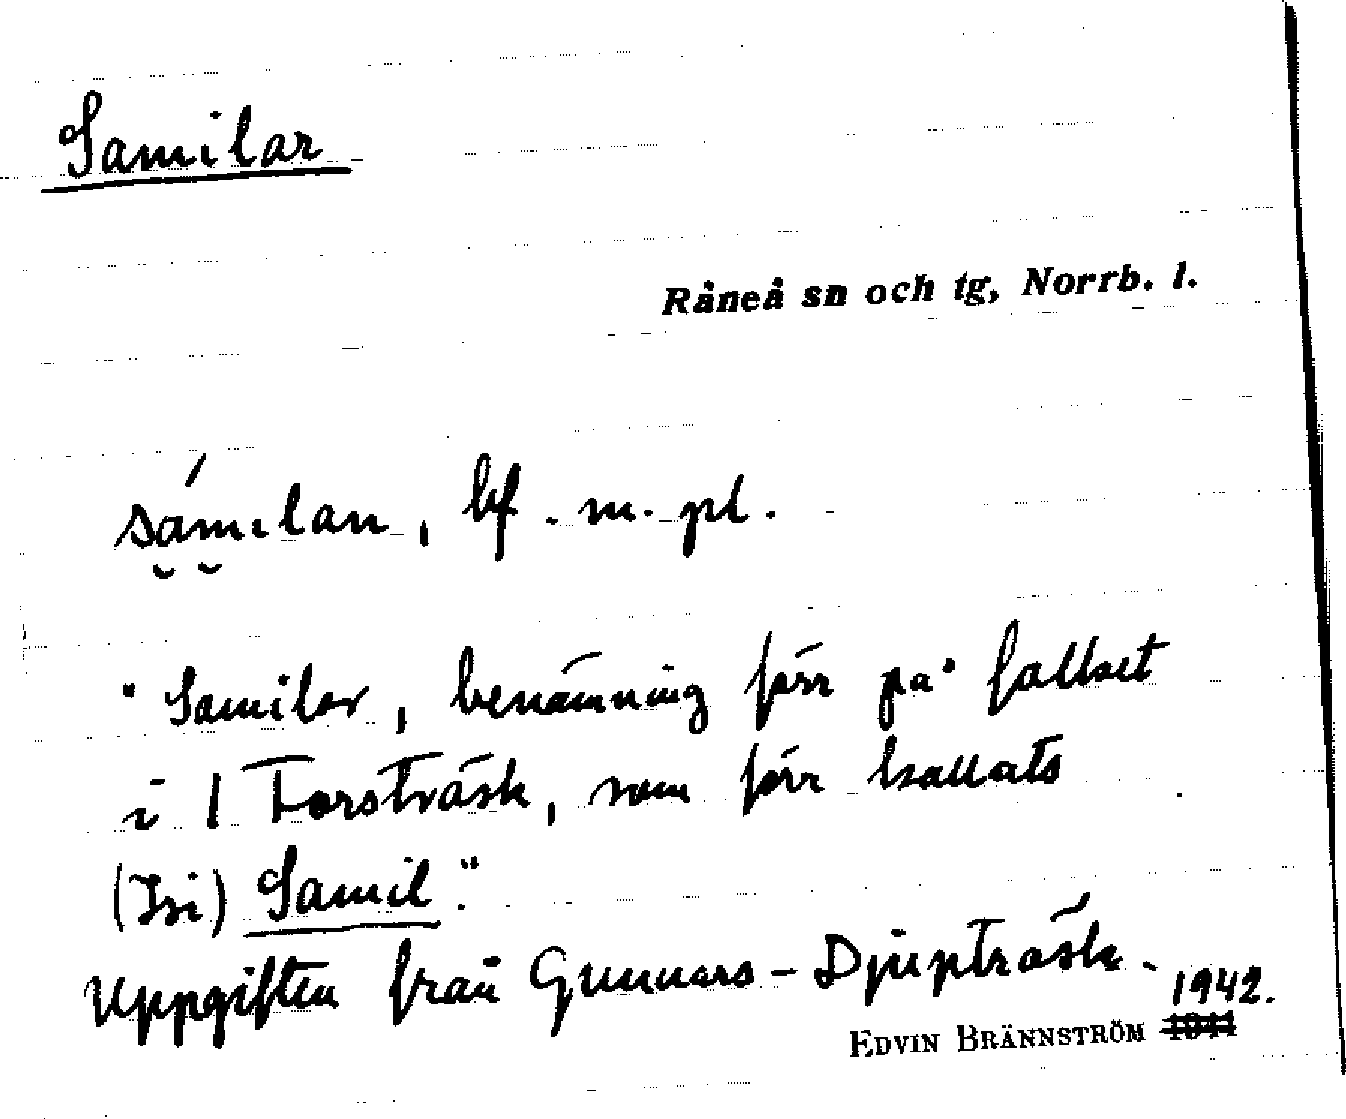 Samilar
Råneå sn och tg, Norrb. l.
sámılan, bf. m. pl.
"Samilar, benämning förr på folket
i 1 Forsträsk, som förr kallats
(Isi) Samil."
Uppgiften från Gunnars-Djupträsk.
1942.
EDVIN BRÄNNSTRÖM 1941